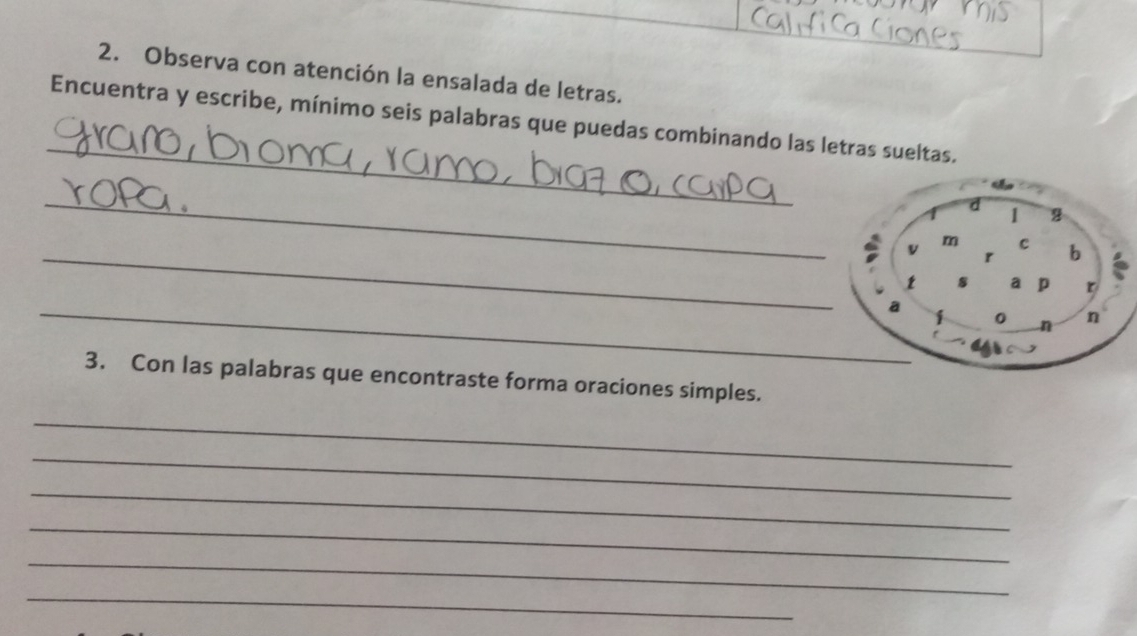 mis
calificaciones
2. Observa con atención la ensalada de letras.
Encuentra y escribe, mínimo seis palabras que puedas combinando las letras sueltas.
grano, bioma, ramo, brazo, carpa
ropa.
d l g
v m r c b
t s a p r
a f o n n
3. Con las palabras que encontraste forma oraciones simples.